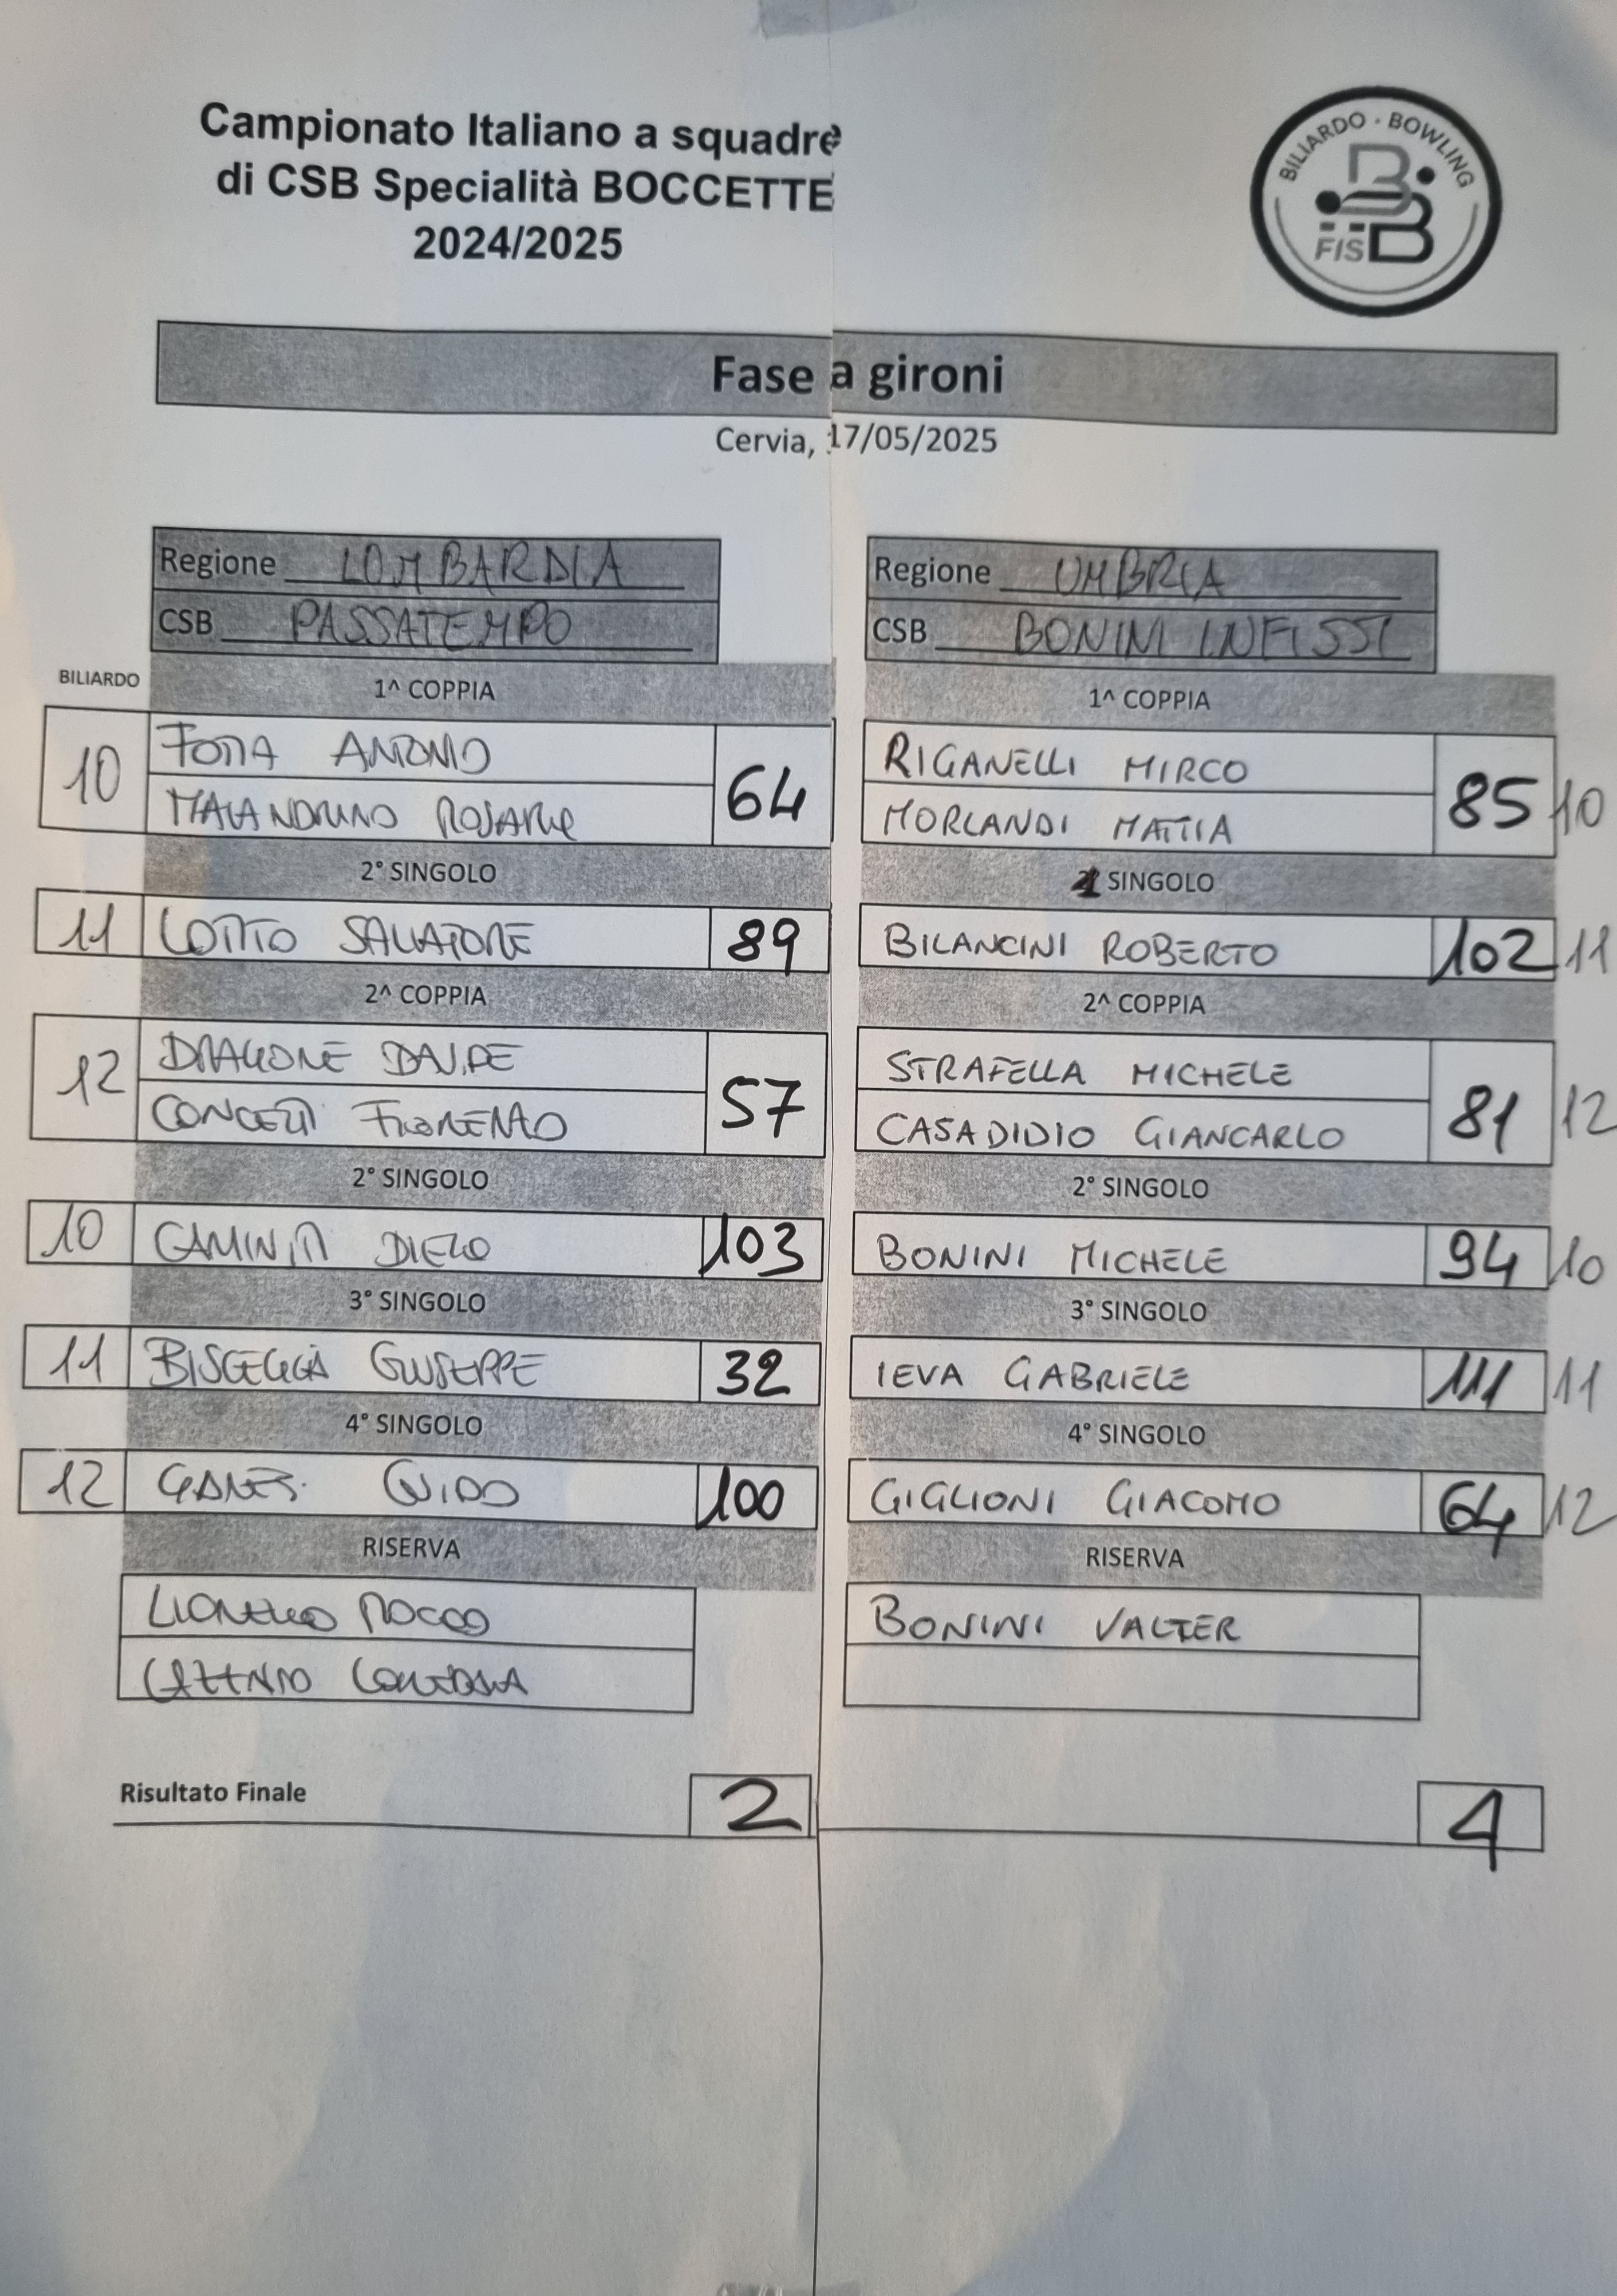 Campionato Italiano a squadre
di CSB Specialità BOCCETTE
2024/2025
BILIARDO · BOWLING
FISBB
Fase a gironi
Cervia, 17/05/2025
Regione LOMBARDIA
CSB PASSATEMPO
Regione UMBRIA
CSB BONINI INFISSI
BILIARDO
1^ COPPIA
1^ COPPIA
10
ANTONIO
64
RIGANELLI MIRCO
85 10
MALANDRINO
MORLANDI MATTIA
2° SINGOLO
1 SINGOLO
11 LOTITO SALVATORE 89
BILANCINI ROBERTO 102 11
2^ COPPIA
2^ COPPIA
12
DRAGONE
57
STRAFELLA MICHELE
81 12
CASADIDIO GIANCARLO
2° SINGOLO
2° SINGOLO
10 CAMINITI DIEGO 103
BONINI MICHELE 94 10
3° SINGOLO
3° SINGOLO
11 BISCEGLIA GIUSEPPE 32
IEVA GABRIELE 111 11
4° SINGOLO
4° SINGOLO
12 GUIDO 100
GIGLIONI GIACOMO 64 12
RISERVA
RISERVA
ROCCO
BONINI VALTER
Risultato Finale 2 4